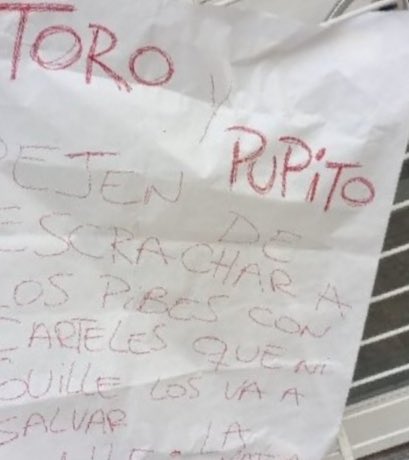 TORO
Y
PUPiTO
DEJEN DE
ESCRACHAR A
LOS PIBES CON
CARTELES QUE Ni
OUILLE LOS VA A
SALVAR LA